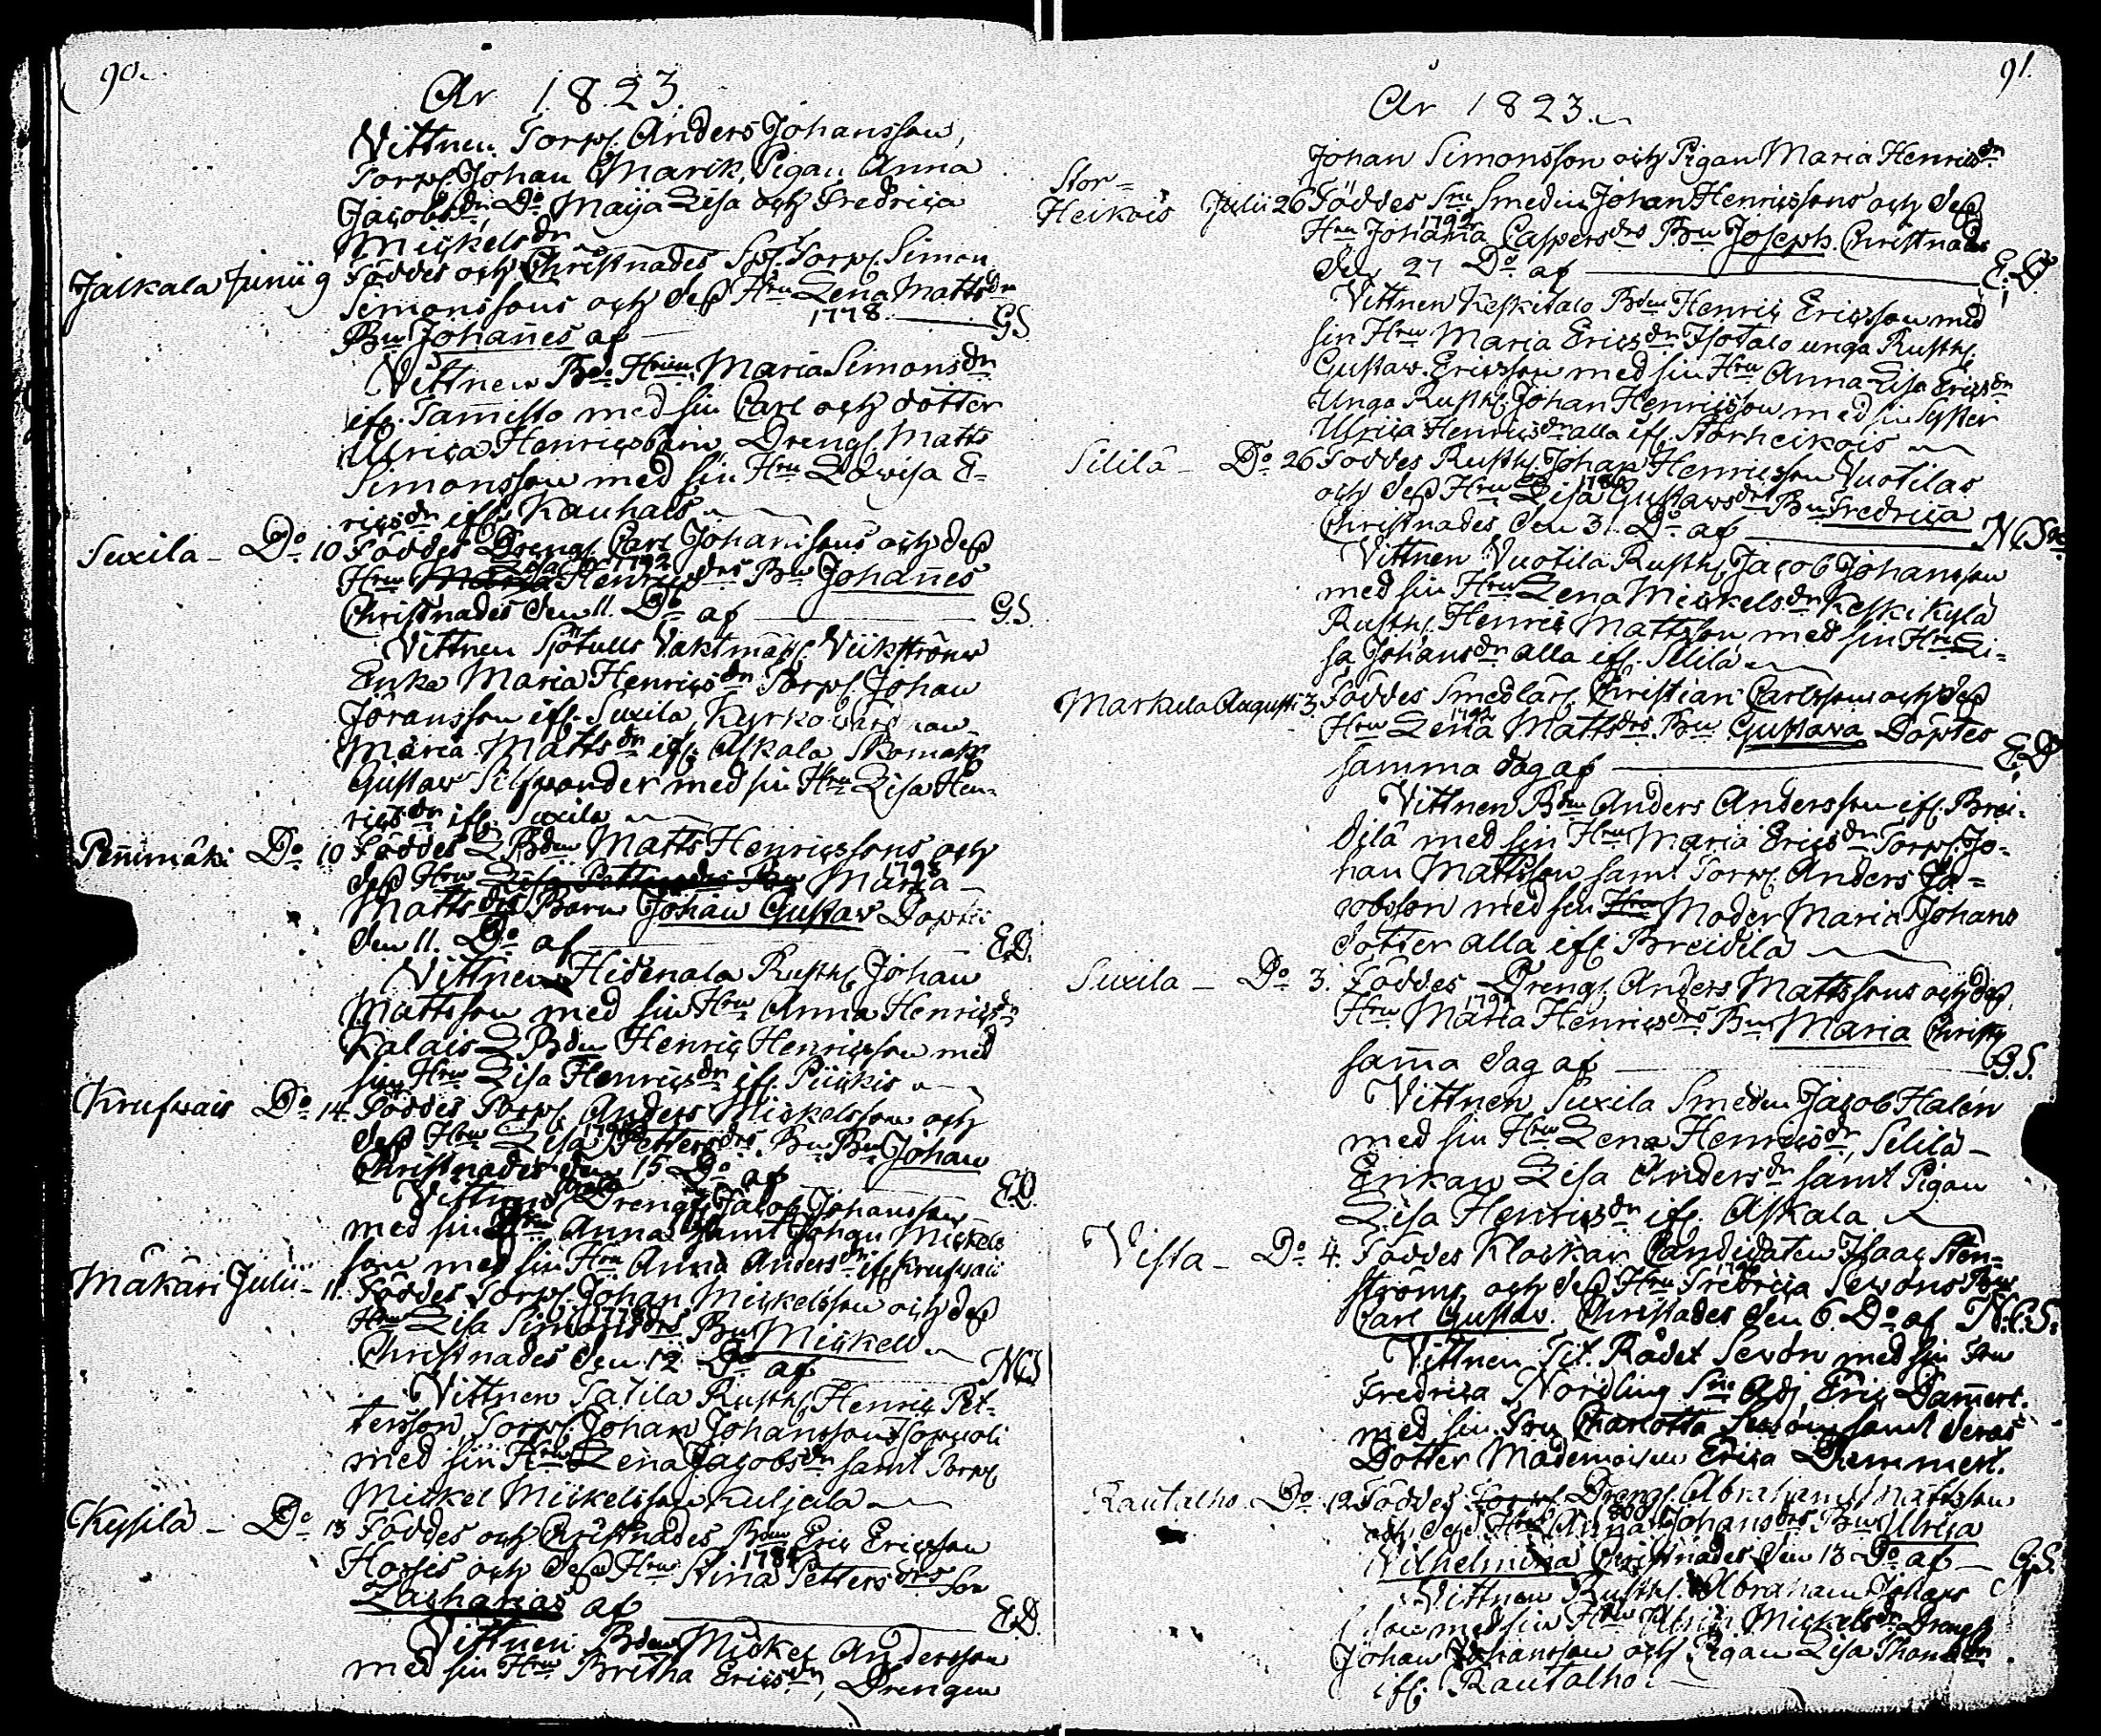 90.
År 1823.
Vittnen Torp. Anders Johansson,
Torp. Johan Marck, Pigan Anna
Jacobsdr, Do Maija Lisa och Fredrica
Mickelsdr
Jalkala Junii 9 Föddes och Christnades Sp. Torp. Simon
Simonssons och dess Hru Lena Mattsdr
1778
Bn Johañes af G.S.
Vittnen Bdo Hrun Maria Simonsdr
ifr. Tamisto med sin Carl och dotter
Ulrica Henrics Drengl. Matts
Simonsson med sin Hru Lovisa E-
ricsdr ifr. Kauhais
Suxila - Do 10 Föddes Drengl. Carl Johanssons och dess
Lisa 1792
Hru Maria Henricsdrs Bn Johañes
Christnades den 11. Do af G.S.
Vittnen Sjötulls Vaktmäst. Vikströms
Enka Maria Henricsdr Torp. Johan
Göransson ifr. Suxila, Kyrko
Maria Mattsdr ifr. Askala Skomak.
Gustav Silfvander med sin Hru Lisa Hen-
ricsdr ifr. Suxila
Peñimäki Do 10 Föddes Bdn Matts Henricssons och
1798
dess Hru Lisa Pettersdrs Bn Maria
Mattsdrs Barn Johan Gustav Döptes
den 11. Do af E.D.
Vittnen Hidenala Rusth. Johan
Mattsson med sin Hru Anna Henricsdr
Kalais Bdn Henric Henricsson med
sin Hru Lisa Henricsdr ifr. Piickis
Krusvais Do 14. Föddes Torp. Anders Mickelsson och
dess Hru Lisa Pettersdrs Bn Bn Johan
Christnades den 15 Do af E.D.
Vittnen Drengl. Jacob Johansson
med sin Hru Anna samt Johan Mickels
son med sin Hru Anna Andersdr ifr. Krusvais
Mäkäri Julii - 11. Föddes Torp. Johan Mickelsson och dess
Hru Lisa Simonsdrs Bn Mickell
Christnades den 12 Do af NCS
Vittnen Tatila Rusth. Henric Pet-
tersson, Torp. Johan Johansson
med sin Hru Lena Jacobsdr samt Torp.
Mickel Mickelsson Kuljala
Kysilä - Do 13 Föddes och Christnades Bdn Eric Ericsson
1784
Hossis och dess Hru Stina Pettersdrs Son
Zacharias af E.D.
Vittnen Bdn Mickel Andersson
med sin Hru Britha Ericsdr, Drengen
91.
År 1823.
Johan Simonsson och Pigan Maria Henricsdr
Stor=
Heikois Julii 26 Föddes Sn Smeden Johan Henricssons och dess
1792
Hru Johana Caspersdrs Bn Joseph Christnades
den 27 Do af E.D.
Vittnen Keskitalo Bdn Henric Ericsson med
sin Hru Maria Ericsdr Isotalo unga Rusth.
Gustav Ericsson med sin Hru Anna Lisa Ericsdr
Unga Rusth. Johan Henricsson med sin Syster
Ulrica Henricsdr alla ifr. Storheikois
Sililä - Do 26 Föddes Rusth. Johan Henricsson Vuotilas
och dess Hru Lisa Gustavsdrs Bn Fredrica
Christnades den 31. Do af NCS
Vittnen Vuotila Rusth. Jacob Johansson
med sin Hru Lena Mickelsdr Keskikylä
Rusth. Henric Mattsson med sin Hru Li-
sa Johansdr alla ifr. Silila
Markula Augusti 3. Föddes Smedlär. Christian Carlssons och dess
1792
Hru Lena Mattsdrs Bn Gustava Döptes
samma dag af E.D.
Vittnen Bdn Anders Andersson ifr. Brei-
dilä med sin Hru Maria Ericsdr Torp. Jo-
han Mattsson samt Torp. Anders Ja-
cobsson med sin Hru Moder Maria Johans
dotter alla ifr. Breidilä
Suxila - Do 3. Föddes Drengl. Anders Mattssons och dess
Hru Maria Henricsdrs Bn Maria Christn
sam̄a dag af G.S.
Vittnen Suxila Smeden Jacob Halen
med sin Hru Lena Henricsdr, Silila
Enkan Lisa Andersdr samt Pigan
Lisa Henricsdr ifr. Askala
Vista - Do 4. Föddes Klockar Candidaten Isaac Sten-
ströms och dess Hru Fredrica Sevóns Bn
Carl Gustav. Christades den 6. Do af N.C.S.
Vittnen Tit. Rådet Sevón med sin Fru
Fredrica Nordling Adj. Eric Dam̄ert.
med sin Fru Charlotta Sevón samt deras
Dotter Mademoisell Erica Dammert.
Rautalho Do 12 Föddes Torp. Drengl. Abraham Mattsson
och dess Hru Anna Johansdrs Bn Ulrica
Vilhelmina Christnades den 13 Do af G.S.
Vittnen Rusth. Abraham Johans
son med sin Hru Mickelsdr Drengl.
Johan Johansson och Pigan Lisa Thomasdr
ifr. Rautalho